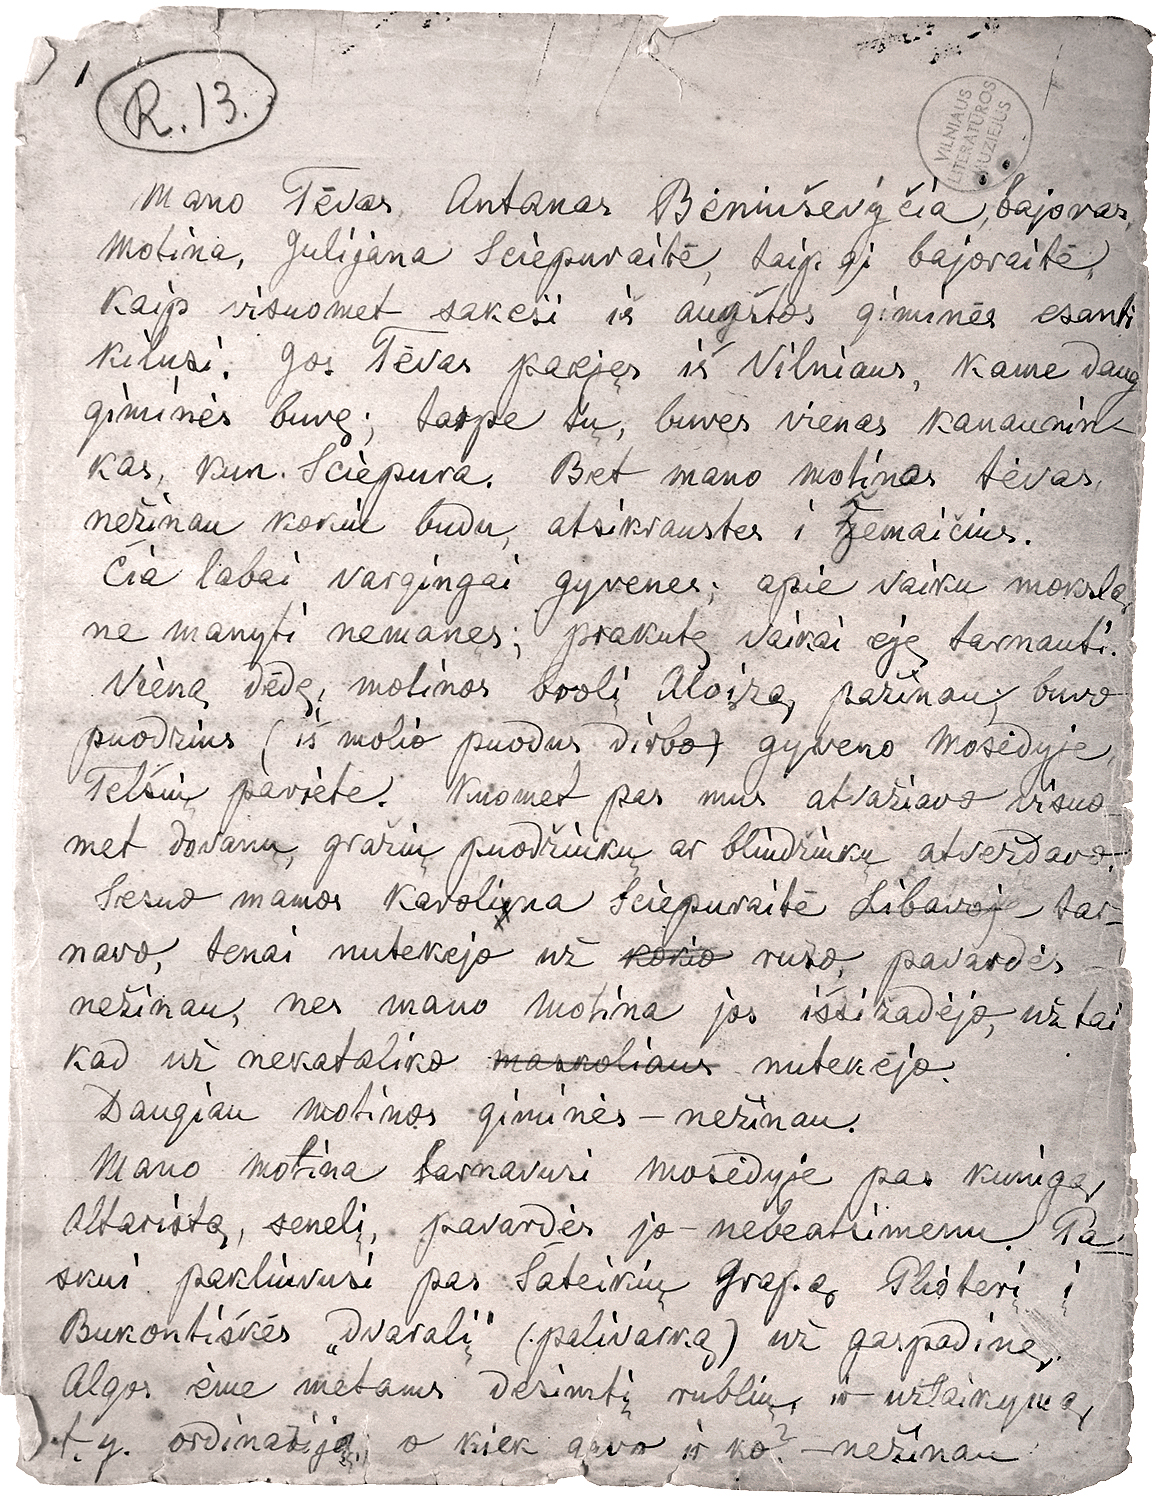 R. 13.
VILNIAUS
LITERATŪROS
MUZIEJUS
Mano Tēvas, Antanas Beniuševyčia, bajoras,
Motina, Julijana Sciepuraitē, taip gi bajoraitē,
kaip visuomet sakėsi iš augštos giminės esanti
kilusi. Jos Tēvas paėjęs iš Vilniaus, kame daug
giminės buvę; tarpe tų, buvęs vienas kanaunin-
kas, kun. Sciepura. Bet mano motinos tėvas,
nežinau kokiu budu, atsikraustes i Žemaičius.
Čia labai vargingai gyvenes; apie vaiku mokslą
ne manyti nemanęs; prakutę vaikai eję tarnauti.
Vieną dēdę, motinos broli Aloizą, pažinau; buvo
puodžius (iš molio puodus dirbo) gyveno Mosėdyje,
Telšių paviete. Kuomet pas mus atvažiavo visuo-
met dovanų, gražių puodžiukų ar bliudžiukų atveždavo.
Sesuo mamos Karolina Sciepuraitē Libavoj tar-
navo, tenai nutekėjo už kokio ruso, pavardės –
nežinau, nes mano Motina jos išsižadėjo, už tai
kad už nekataliko maskoliaus nutekėjo.
Daugiau motinos giminės – nežinau.
Mano motina tarnavusi Mosėdyje pas kunigą,
Altaristą, senelį, pavardės jo – nebeatsimenu. Pa-
skui pakliuvusi pas Šateikių Grapą Plioterį į
Bukontiškės „dvaralį" (palivarką) už gaspadinę.
Algos ėmė metams dešimtį rublių, ir užlaikymą,
t. y. ordinariją, o kiek gavo ir ko? – nežinau